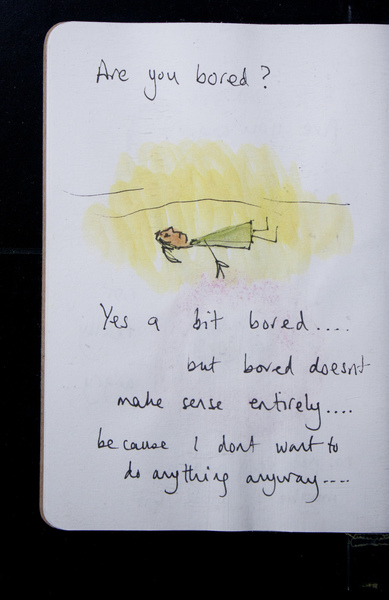 Are you bored?
Yes a bit bored....
but bored doesn't
make sense entirely....
because I dont want to
do anything anyway....